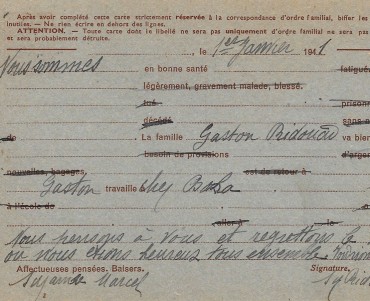 Après avoir complété cette carte strictement réservée à la correspondance d'ordre familial, biffer les
inutiles. — Ne rien écrire en dehors des lignes.
ATTENTION. — Toute carte dont le libellé ne sera pas uniquement d'ordre familial ne sera pas
et sera probablement détruite.
, le 1er Janvier 1941
Nous sommes en bonne santé fatigué
légèrement, gravement malade, blessé.
tué prison
décédé sans
de La famille Gaston va bien
besoin de provisions d'argen
nouvelles, bagages est de retour à
Gaston travaille chez
à l'école de
aller à le
Nous pensons à vous et regrettons le
où nous étions heureux tous ensemble.
Affectueuses pensées, Baisers. Signature,
Suzanne Marcel